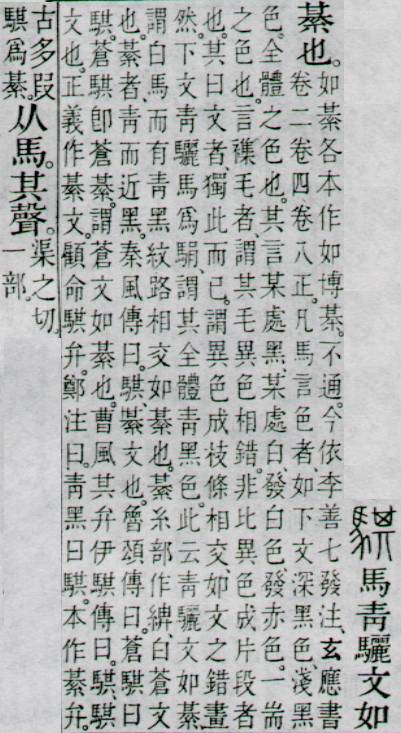 馬青驪文如
綦也。
如綦各本作如博棊。不通。今依李善七發注、玄應書
卷二卷四卷八正。凡馬言色者、如下文深黑色、淺黑
色。全體之色也。其言某處黑、某處白、發白色、發赤色。一耑
之色也。言襍毛者、謂其毛異色相錯。非比異色成片段者
也。其曰文者、獨此而已。謂異色成枝條相交、如文之錯畫
然。下文青驪馬爲駽、謂其全體青黑色。此云青驪文如綦、
謂白馬而有青黑紋路相交如綦也。綦糸部作綥、白蒼文
也。綦者、青而近黑。秦風傳曰。騏、綦文也。魯頌傳曰。蒼騏曰
騏。蒼騏卽蒼綦。謂蒼文如綦也。曹風其弁伊騏傳曰。騏、騏
文也。正義作綦文。顧命騏弁。鄭注曰。青黑曰騏。本作綦弁。
古多叚
騏爲綦。
从馬。其聲。
渠之切。
一部。